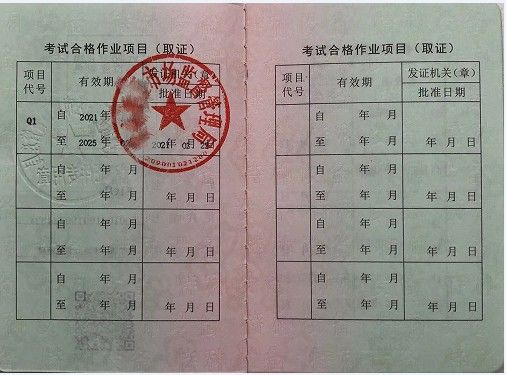 考试合格作业项目（取证）
项目代号 有效期 发证机关（章）
批准日期
Q1 自 2021 年
至 2025 年 2021 年 03 月 日
自 年 月
至 年 月 年 月 日
自 年 月
至 年 月 年 月 日
自 年 月
至 年 月 年 月 日
市场监督管理局
考试合格作业项目（取证）
项目代号 有效期 发证机关（章）
批准日期
自 年 月
至 年 月 年 月 日
自 年 月
至 年 月 年 月 日
自 年 月
至 年 月 年 月 日
自 年 月
至 年 月 年 月 日